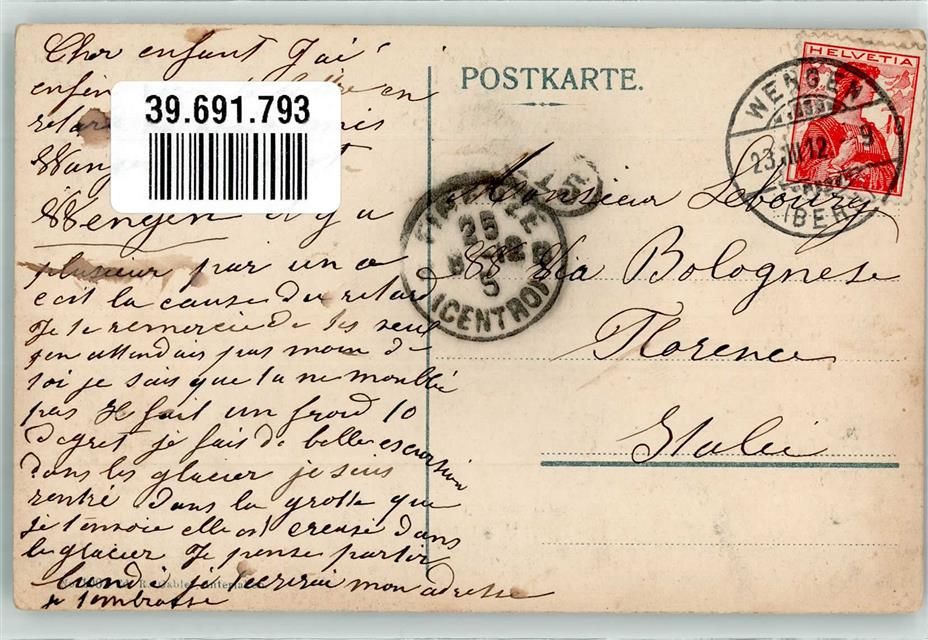 Cher enfant J'ai
enfin en
retard
39.691.793
Wang
Wengen il y a
plusieur par un a
cest la cause du retard
Je te remercie de tes veux
j'en attendais pas moin de
toi je sais que tu ne moublie
pas Il fait un froid 10
degret je fait de belle escursion
dans les glacier je suis
rentré dans la grotte que
je t'envoie elle est creusé dans
le glacier Je pense partir
lundi je t'ecrirai mon adresse
je t'embrasse
R. Gabler, Interlaken
POSTKARTE.
HELVETIA
WENGEN
23.III.12 9
(BERN)
FIRENZE
25
12
5
CENTRO
Monsieur Lebourg
88 Via Bolognese
Florence
Italie